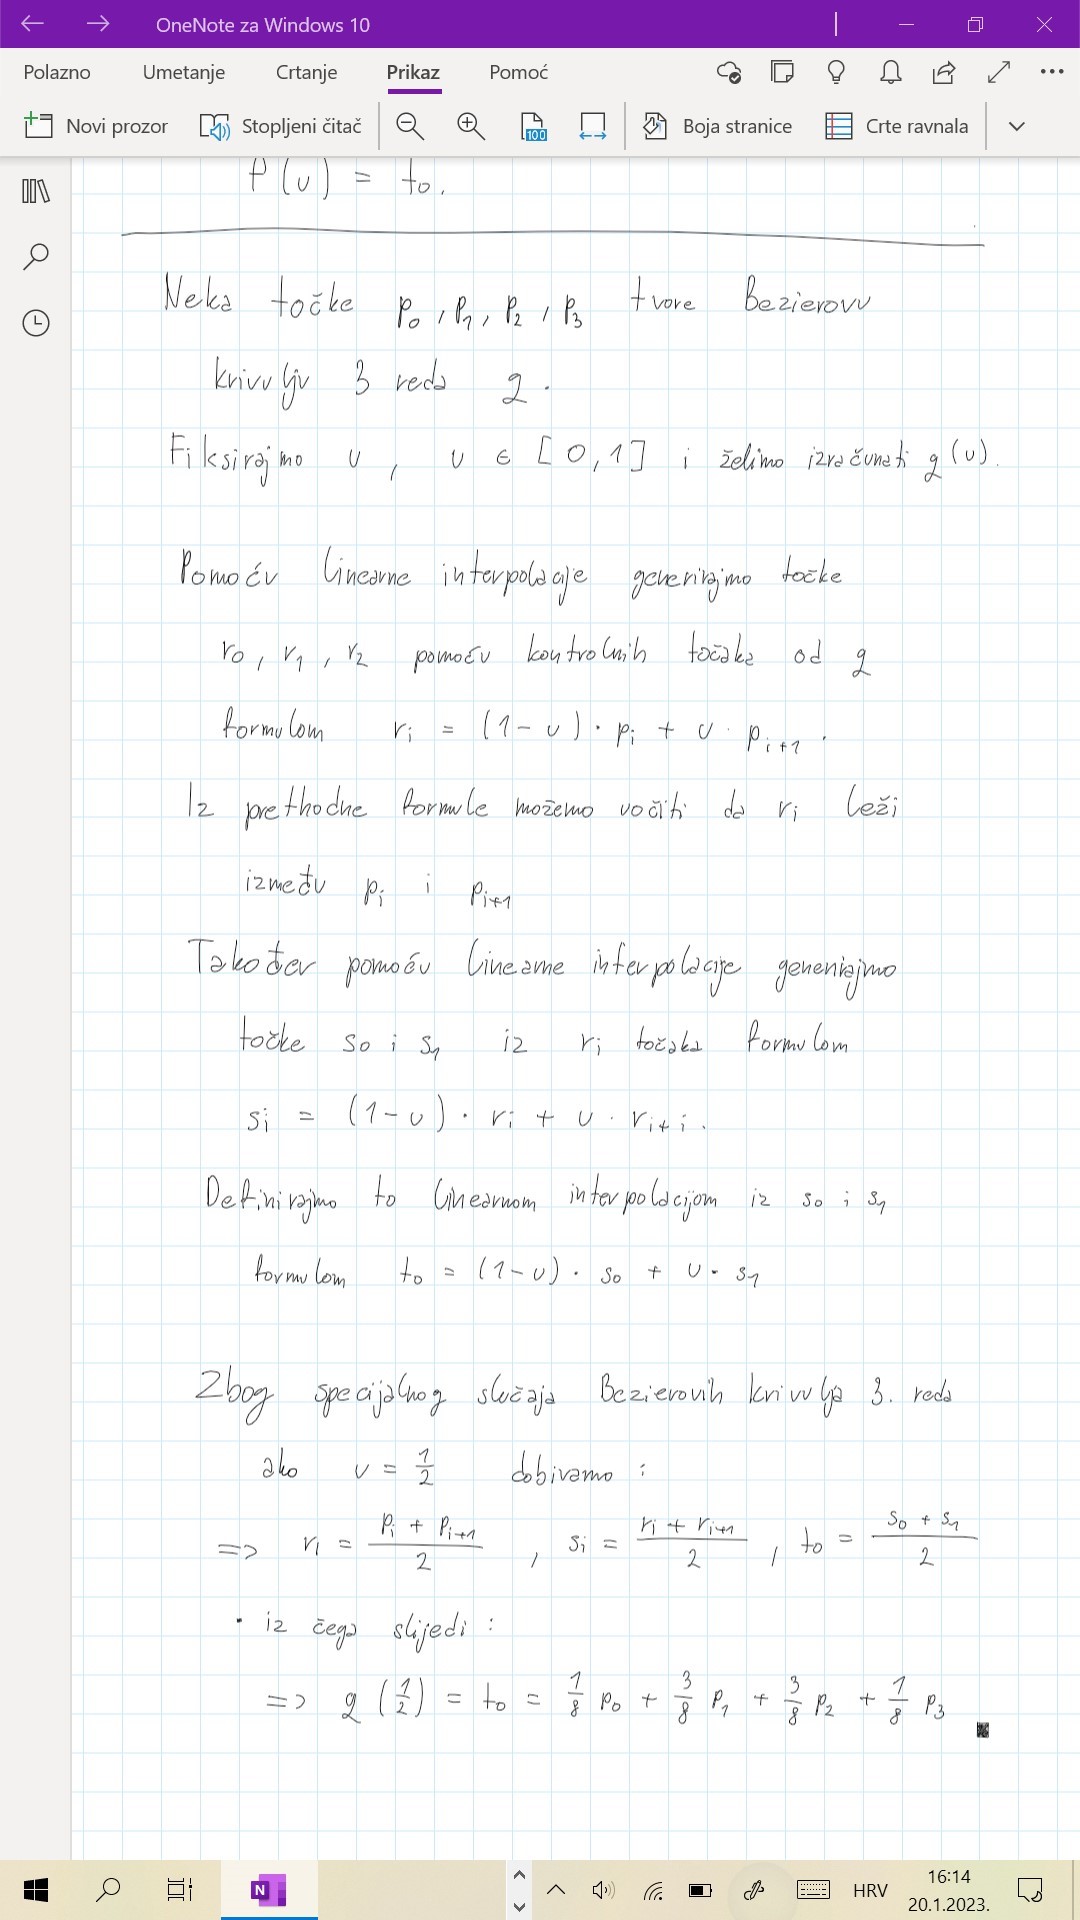 OneNote za Windows 10
Polazno Umetanje Crtanje Prikaz Pomoć
Novi prozor Stopljeni čitač 100 Boja stranice Crte ravnala
P(u) = t₀.
Neka točke p₀, p₁, p₂, p₃ tvore Bezierovu
krivulju 3 reda g.
Fiksirajmo u, u ∈ [0,1] i želimo izračunati g(u).
Pomoću linearne interpolacije generirajmo točke
r₀, r₁, r₂ pomoću kontrolnih točaka od g
formulom rᵢ = (1-u)·pᵢ + u·pᵢ₊₁.
Iz prethodne formule možemo uočiti da rᵢ leži
između pᵢ i pᵢ₊₁
Također pomoću linearne interpolacije generirajmo
točke s₀ i s₁ iz rᵢ točaka formulom
sᵢ = (1-u)·rᵢ + u·rᵢ₊ᵢ.
Definirajmo t₀ linearnom interpolacijom iz s₀ i s₁
formulom t₀ = (1-u)·s₀ + u·s₁
Zbog specijalnog slučaja Bezierovih krivulja 3. reda
ako u = 1/2 dobivamo:
=> rᵢ = (pᵢ + pᵢ₊₁)/2, sᵢ = (rᵢ + rᵢ₊₁)/2, t₀ = (s₀ + s₁)/2
· iz čega slijedi:
=> g(1/2) = t₀ = 1/8 p₀ + 3/8 p₁ + 3/8 p₂ + 1/8 p₃
N HRV 16:14
20.1.2023.